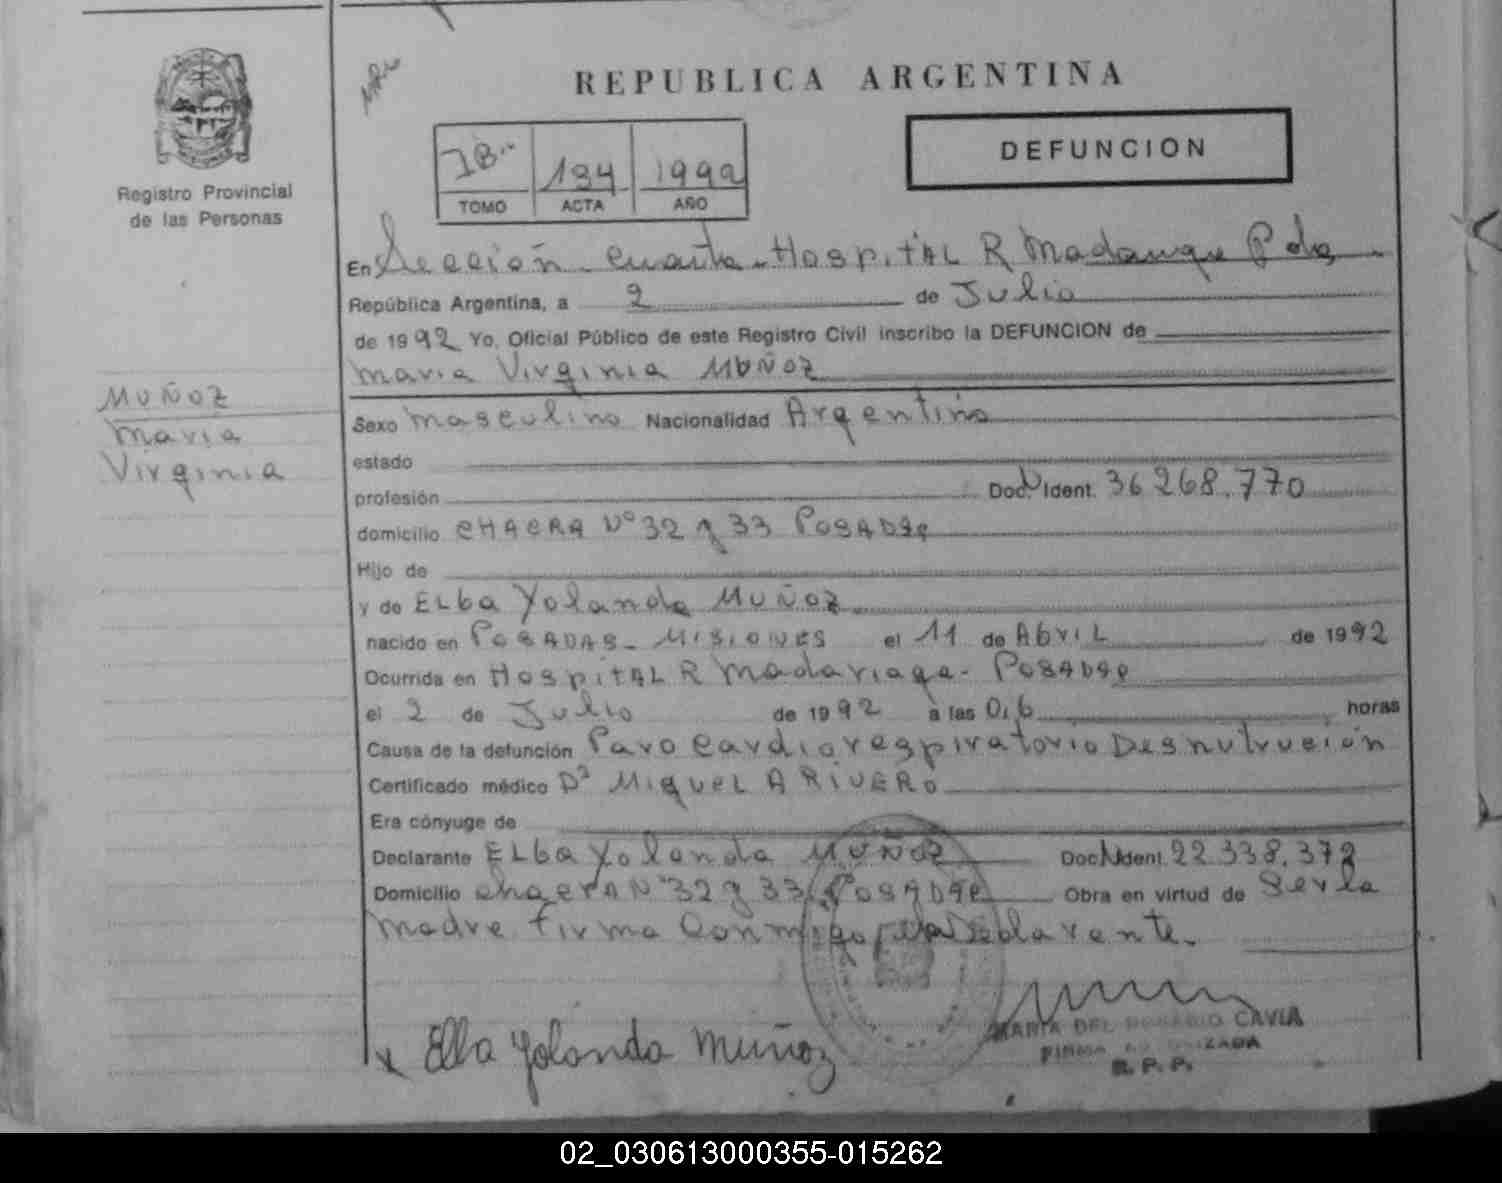 REPUBLICA ARGENTINA
DEFUNCION
Registro Provincial
de las Personas
194 1992
TOMO ACTA AÑO
En Sección Cuarta - HospitAL R Madariaga Pdas
República Argentina, a 2 de Julio
de 1992 Yo, Oficial Público de este Registro Civil inscribo la DEFUNCION de
Maria Virginia MUÑOZ
MUÑOZ
Maria
Virginia
Sexo Masculino Nacionalidad Argentino
estado
profesión Doc. Ident. 36 268.770
domicilio CHACRA Nº 32 y 33 POSADAS
Hijo de
y de ELba Yolanda MUÑOZ
nacido en POSADAS - MISIONES el 11 de AbriL de 1992
Ocurrida en HospitAL R Madariaga - POSADAS
el 2 de Julio de 1992 a las 0,6 horas
Causa de la defunción Paro Cardiorespiratorio Desnutrución
Certificado médico Dr MiguEL A RIVERO
Era cónyuge de
Declarante ELba Yolanda MUÑOZ Doc. Ident. 22.338.372
Domicilio chacra Nº 32 y 33 POSADAS Obra en virtud de Ser la
Madre firma Conmigo la Declarante.
Elba Yolanda Muñoz
MARIA DEL ROSARIO CAVIA
FIRMA AUTORIZADA
R. P. P.
02_030613000355-015262